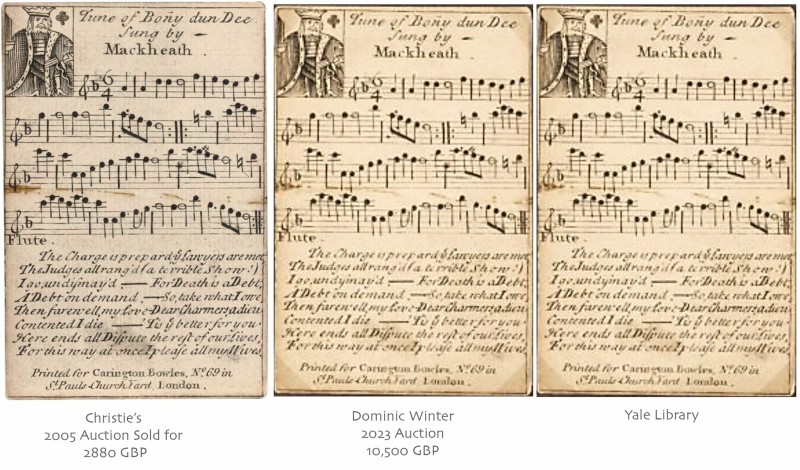 Tune of Boñy dun Dee
Sung by
Mackheath.
Flute.
The Charge is prepar'd ẏ Lawyers are met,
The Judges all rang'd (a terrible Show!)
I go, undismay'd — For Death is a Debt,
A Debt on demand, — So, take what I owe,
Then farewell, my Love — Dear Charmers, adieu
Contented I die — 'Tis ẏ better for you.
Here ends all Dispute the rest of our Lives,
For this way at once I please all my Wives,
Printed for Carington Bowles, No. 69 in
St. Pauls Church Yard, London.
Christie's
2005 Auction Sold for
2880 GBP
Tune of Boñy dun Dee
Sung by
Mackheath
Flute.
The Charge is prepar'd ẏ Lawyers are met,
The Judges all rang'd (a terrible Show!)
I go, undismay'd — For Death is a Debt,
A Debt on demand, — So, take what I owe,
Then farewell, my Love — Dear Charmers, adieu
Contented I die — 'Tis ẏ better for you.
Here ends all Dispute the rest of our Lives,
For this way at once I please all my Wives,
Printed for Carington Bowles, No. 69 in
St. Pauls Church Yard, London.
Dominic Winter
2023 Auction
10,500 GBP
Tune of Boñy dun Dee
Sung by
Mackheath
Flute.
The Charge is prepar'd ẏ Lawyers are met,
The Judges all rang'd (a terrible Show!)
I go, undismay'd — For Death is a Debt,
A Debt on demand, — So, take what I owe,
Then farewell, my Love — Dear Charmers, adieu
Contented I die — 'Tis ẏ better for you.
Here ends all Dispute the rest of our Lives,
For this way at once I please all my Wives,
Printed for Carington Bowles, No. 69 in
St. Pauls Church Yard, London.
Yale Library